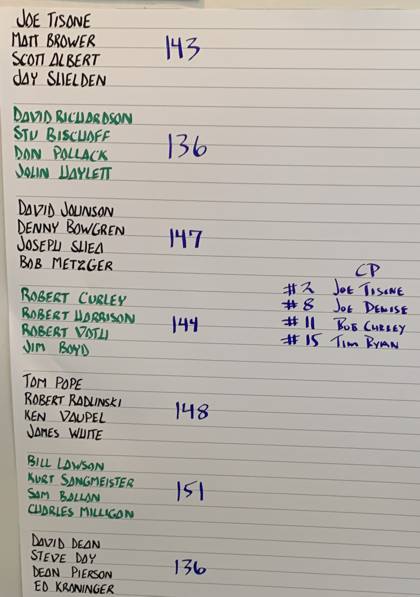 JOE TISONE
MATT BROWER
SCOTT ALBERT
JAY SHELDEN
143
DAVID RICHARDSON
STU BISCHOFF
DON POLLACK
JOHN HAYLETT
136
DAVID JOHNSON
DENNY BOWGREN
JOSEPH SHEA
BOB METZGER
147
ROBERT CURLEY
ROBERT HARRISON
ROBERT VOTH
JIM BOYD
144
CP
#2 JOE TISONE
#8 JOE DENISE
#11 BOB CURLEY
#15 TIM RYAN
TOM POPE
ROBERT RADLINSKI
KEN VAUPEL
JAMES WHITE
148
BILL LAWSON
KURT SANGMEISTER
SAM BALLAN
CHARLES MILLIGAN
151
DAVID DEAN
STEVE DAY
DEAN PIERSON
ED KRANINGER
136